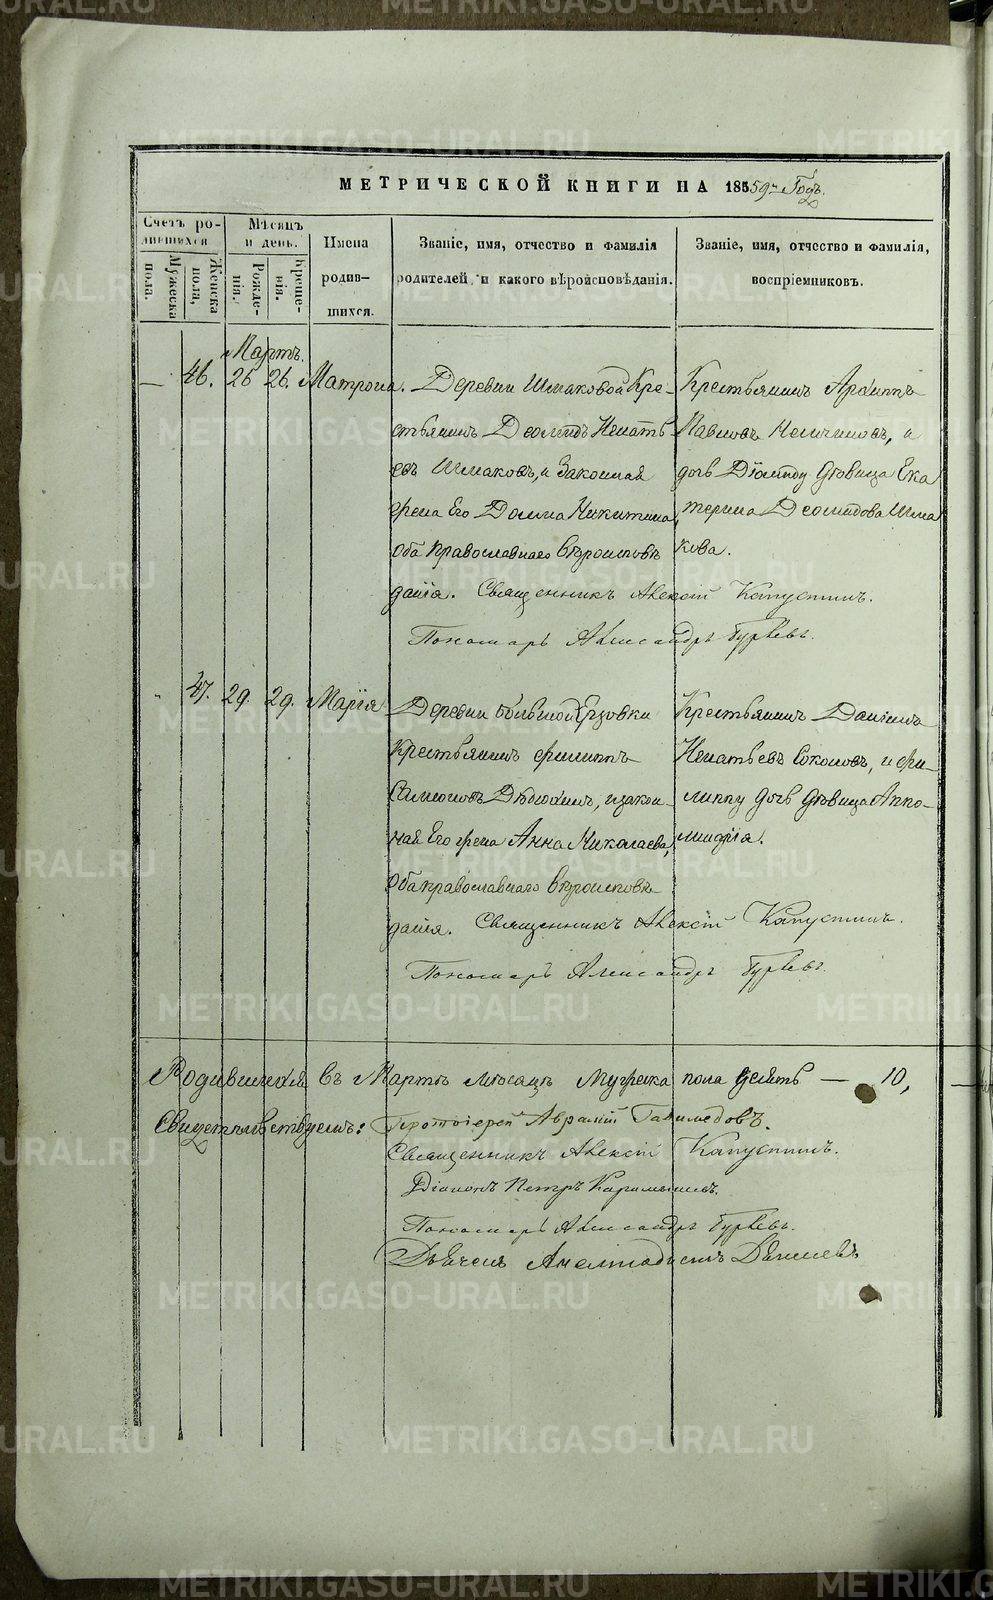 МЕТРИЧЕСКОЙ КНИГИ НА 1859й Годъ.
Счетъ родившихся
Мужеска пола.
Женска пола,
Мѣсяцъ и день.
Рожденія.
Крещенія.
Имена родившихся.
Званіе, имя, отчество и фамилія родителей, и какого вѣроисповѣданія.
Званіе, имя, отчество и фамилія, воспріемниковъ.
Мартъ.
— 46. 26 26. Матрона. Деревни Шмаковой Кре-
стьянинъ Деомидъ Игнатьевъ Шмаковъ, и Законная
жена Его Домна Никитина,
оба православнаго вѣроисповѣ
данія. Священникъ Алексій Капустинъ.
Пономарь Александръ Гурьевъ.
Крестьянинъ Архиппъ
Павловъ, и
дочь Діомиду дѣвица Ека
терина Деомидова Шма
кова.
" 47. 29. 29. Марія Деревни Большой Ерзовки
Крестьянинъ Филиппъ
Симоновъ, и закон-
ная Его жена Анна Николаева,
оба православнаго вѣроисповѣ
данія. Священникъ Алексій Капустинъ.
Пономарь Александръ Гурьевъ.
Крестьянинъ Даніилъ
Игнатьевъ Соколовъ, и Фи-
липпу дочь дѣвица Аппо-
линарія.
Родившихся въ Мартѣ мѣсяцѣ Мужеска пола десять — 10,
Свидѣтельствуемъ: Протоіерей Аврамій Ганимедовъ.
Священникъ Алексій Капустинъ.
Діаконъ Петръ Карамышевъ.
Пономарь Александръ Гурьевъ.
Дьячекъ